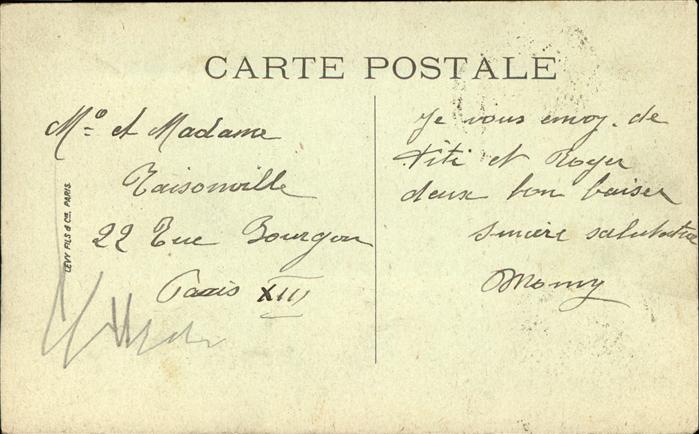 CARTE POSTALE
Mr et Madame
Raisonville
22 Rue Bourgon
Paris XIII
LEVY FILS & Cie. PARIS
Je vous envoy. de
titi et Roger
deux bon baiser
sincère
Momy